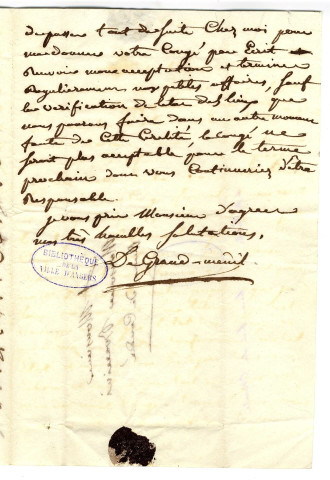 de passer tout de suite Chez moi pour
me donner votre Congé par Ecrit
Recevoir mon acceptation et terminer
Regulierement nos petites affaires, sauf
la verification de letat des lieux que
nous pouvons faire dans un autre moment
faute de Cette Cela, le congé ne
seroit plus acceptable pour le terme
prochain dont vous Continueriez d'être
Responsable.
je vous prie Monsieur d'agréer
mes très humbles Salutations,
De Grand-menil
BIBLIOTHÈQUE
DE LA
VILLE D'ANGERS